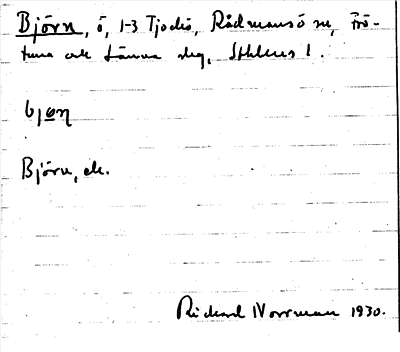 Björn, ö, 1-3 Tjockö, Rådmansö sn, Frö-
tuna och Länna skg, Sthlms l.
bjøɳ
Björn, ek.
Richard Norrman 1930.